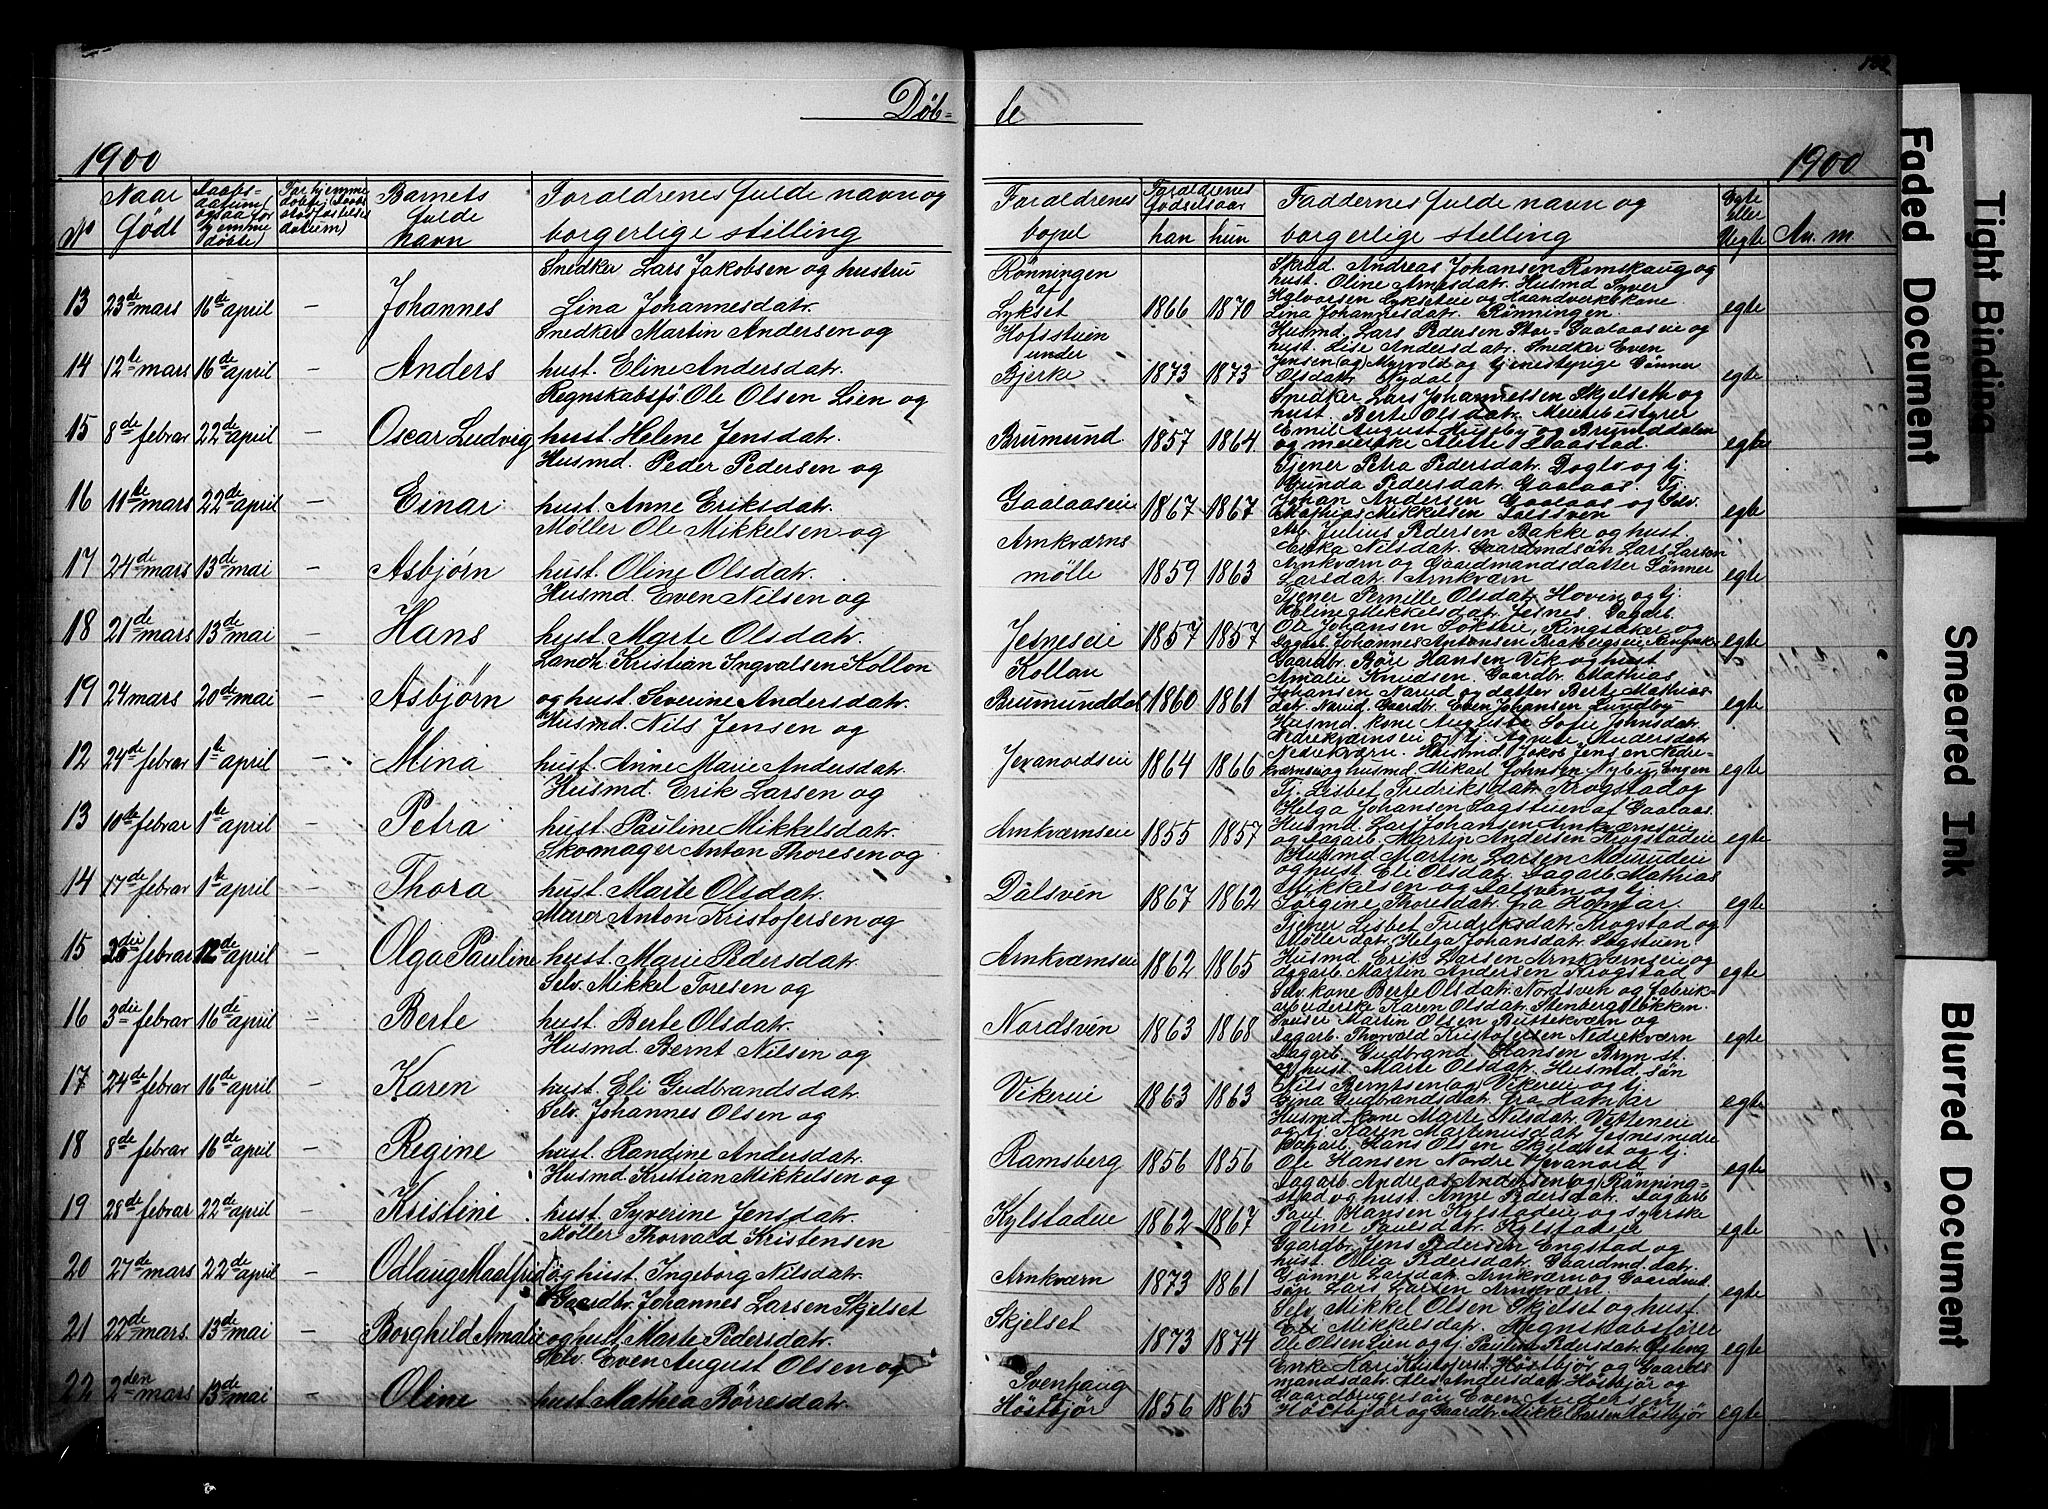 Døb-
te
1900
1900
No
Naar født
Daabs-datum (ogsaa for hjemme døbte)
For hjemme døbte, (Daabs stadfæstelses datum)
Barnets fulde navn
Foraldrenes fulde navn og borgerlige stilling
Foraldrenes bopel
Foraldrenes fødselsaar
han hun
Faddernes fulde navn og borgerlige stilling
Egte eller Uegte
An. m.
13 23de mars 16de april — Johannes
Snedker Lars Jakobsen og hustru
Lina Johannesdatr.
Rønningen af Lykset 1866 1870
Skræd. Andreas Johansen Ramskaug og
hust. Oline Arnesdatr. Husmd Syver
Halvorsen Lykseteie og Haandverkskone
Lina Johannesdatr. Rønningen.
egte
14 12te mars 16de april — Anders
Snedker Martin Andersen og
hust. Eline Andersdatr.
Hofsstuen under Bjerke 1873 1873
Husmd. Lars Pedersen Stor-Gaalaaseie og
hust. Lise Andersdatr. Snedker Even
Jensen (og) Myrvold og tjenestepige Gønner
Olsdatr. Sydal
egte
15 8de febrar 22de april — Oscar Ludvig
Regnskabsfö. Ole Olsen Lien og
hust. Helene Jensdatr.
Brumund 1857 1864
Snedker Lars Johannessen Skjelseth og
hust. Berte Olsdatr. Meieribestyrer
Emil August Austby og Brumddalen
og meierske Alette Staastad
egte
16 11te mars 22de april — Einar
Husmd. Peder Pedersen og
hust. Anne Eriksdatr.
Gaalaaseie 1867 1867
Tjener Petra Pedersdatr. Doglo og tj.
Gunda Pedersdatr. Gaalaas. Tj.
Johan Andersen Gaalaas og Selv.
Mathias Mikkelsen
egte
17 24de mars 13de mai — Asbjørn
Møller Ole Mikkelsen og
hust. Oline Olsdatr.
Arnkværns mølle 1859 1863
Arb. Julius Pedersen Bakke og hust.
Erika Nilsdatr. Gaardmdsøn Lars Larsen
Arnkværn og Gaardmandsdatter Gønner
Larsdatr. Arnkværn
egte
18 21de mars 13de mai — Hans
Husmd. Even Nilsen og
hust. Marte Olsdatr.
Jesneseie 1857 1857
Tjener Pernille Olsdatr. Hovin og tj.
Eline Mikkelsdatr. Jesnes. Dagarb.
Ole Johansen Ringsaker og
Dagarb. Johannes Antonsen
egte
19 24 mars 20de mai — Asbjørn
Landh. Kristian Ingvalsen Kollon
og hust. Severine Andersdatr.
Kollon Brumunddal 1860 1861
Gaardbr. Böre Hansen Vik og hust
Amalie Knudsen. Gaardbr. Mathias
Johansen Narud og datter Berte Mathias-
datr. Narud. Gaardbr. Even Johansen Lundby
egte
12 24de febrar 1te april — Mina
Husmd. Nils Jensen og
hust. Anne Marie Andersdatr.
Jevanordseie 1864 1866
Husmd. kone Auguste Sofie Johnsdatr.
Nedrekværnseie og tj. Agnete Andersdatr.
Nedrekværn. Husmd. Jakob Jensen Nedre-
kværnseie og husmd. Mikael Johnsen Nybu, Engen
egte
13 10de febrar 1te april — Petra
Husmd. Erik Larsen og
hust. Pauline Mikkelsdatr.
Arnkværnseie 1855 1857
Tj. Lisbet Fredriksdatr. Krogstad og
Helga Johansen Sagstuen af Gaalaas.
Husmd. Lars Johansen Arnkværnseie
og Dagarb. Martin Andersen Krogstadeie
egte
14 17de febrar 1te april — Thora
Skomager Anton Thoresen og
hust. Marte Olsdatr.
Dalsven 1867 1862
Husmd Martin Larsen
og hust. Eli Olsdatr. Dagarb. Mathias
Mikkelsen og Dalsven og tj.
Jørgine Thoresdatr. fra Hamar.
egte
15 febrar 12de april — Olga Pauline
Murer Anton Kristofersen og
hust. Marie Pedersdatr.
Arnkværnseie 1862 1865
Tjener Lisbet Fredriksdatr. Krogstad og
Møllerdatr. Helga Johansdatr. Sagstuen
Husmd. Erik Larsen Arnkværnseie og
dagarb. Martin Andersen Krogstad
egte
16 3die febrar 16de april — Berte
Selv. Mikkel Toresen og
hust. Berte Olsdatr.
Nordsvén 1863 1868
Selv. kone Berte Olsdatr. Nordsven og fabrik-
arbeiderske Karen Olsdatr. Stenbergløkken.
Sveiser Martin Olsen Buttekværn og
Dagarb. Thorvald Kristofersen Nedrekværn
egte
17 24de febrar 16de april — Karen
Husmd. Bernt Nilsen og
hust. Eli Gudbrandsdatr.
Vikereie 1863 1863
Dagarb. Gudbrand Hansen Bryn st.
og hust. Marte Olsdatr. Husmd. søn
Nils Berntsen (og) Vikereie og tj.
Lina Gudbrandsdatr. fra Hamar
egte
18 8de febrar 16de april — Regine
Selv. Johannes Olsen og
hust. Randine Andersdatr.
Ramsberg 1856 1856
Husmd. kone Marte Nilsdatr.
og tj. Karen Martinusdatr. Jesnesnedre
Dagarb. Hans Olsen Skjelset og tj.
Ole Hansen Nordre Jevanord
egte
19 28de febrar 22de april — Kristine
Husmd. Kristian Mikkelsen og
hust. Syverine Jensdatr.
Kylstadeie 1862 1867
Dagarb. Andreas Andersen (og) Rønning-
stad og hust. Anne Pedersdatr. Dagarb
Paul Hansen Kylstadeie og syerske
Oline Paulsdatr. Kylstadeie
egte
20 27de mars 22de april — Odlaug Maalfrid
Møller Thorvald Kristensen
og hust. Ingeborg Nilsdatr.
Arnkværn 1873 1861
Gaardbr. Jens Pedersen Engstad og
hust. Olia Pedersdatr. Gaardmd. datr.
Gønner Larsdatr. Arnkværn og Gaardmd.
søn Lars Larsen Arnkværn.
egte
21 22de mars. 13de mai — Borghild Amalie
Gaardbr. Johannes Larsen Skjelset
og hust. Marte Pedersdatr.
Skjelset 1873 1874
Selv. Mikkel Olsen Skjelset og hust.
Eli Mikkelsdatr. Regnskabsfører
Ole Olsen Lien og tj. Pauline Pedersdatr.
egte
22 2den mars 13de mai — Oline
Selv. Even August Olsen og
hust. Mathea Börresdatr.
Svenhaug af Höstbjör 1856 1865
Enke Kari Kristofersd. Höstbjör og Gaards
mandsdatr. Andersdatr. Höstbjör og
Gaardbrugersön Even Andersen
Höstbjör og Gaardbr. Mikkel Larsen Höstbjör
egte
Faded Document
Tight Binding
Smeared Ink
Blurred Document